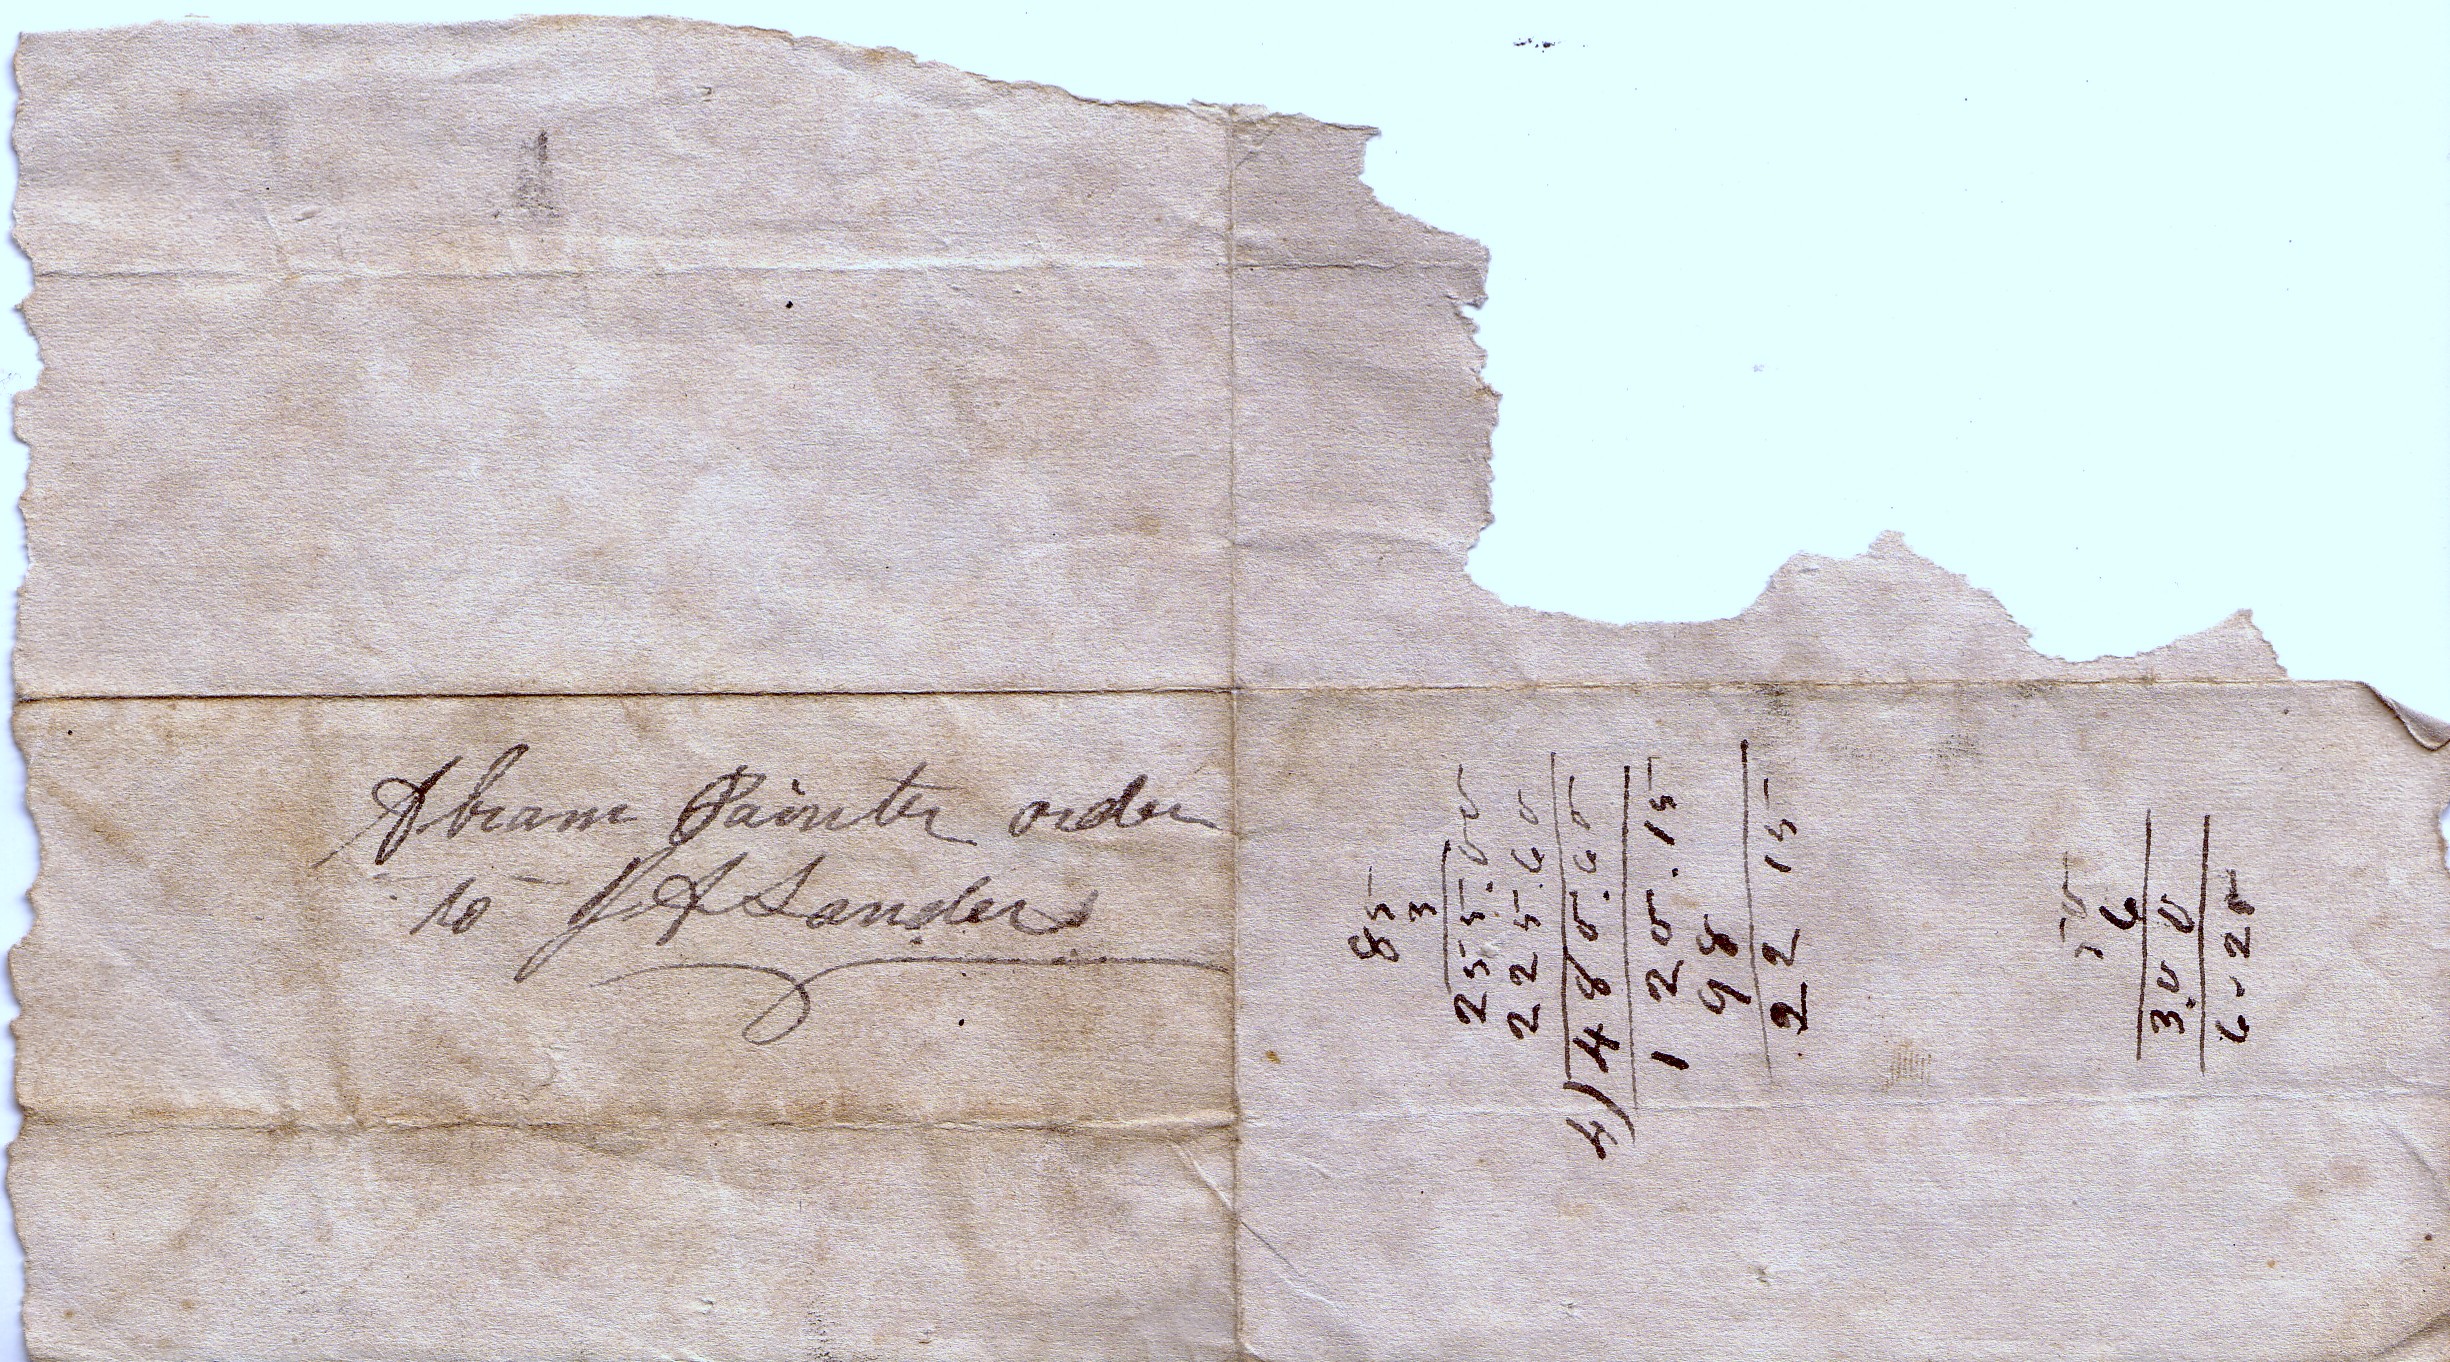 Abram Painter order
to J A Sanders
85
3
255.00
225.60
4)480.60
120.15
98
22 15
50
6
3.00
6-25